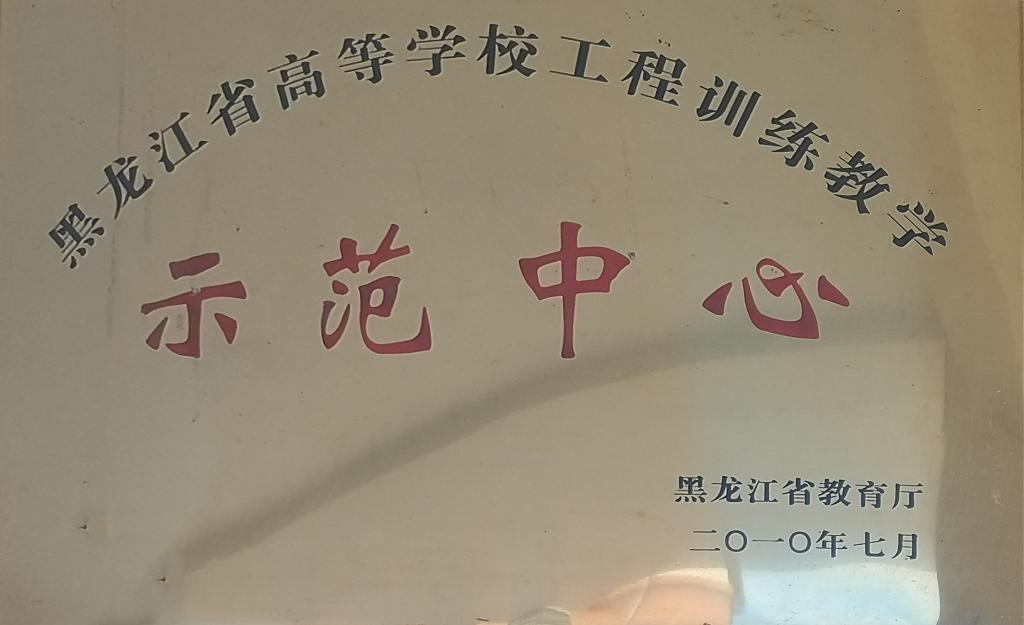 黑龙江省高等学校工程训练教学
示范中心
黑龙江省教育厅
二〇一〇年七月